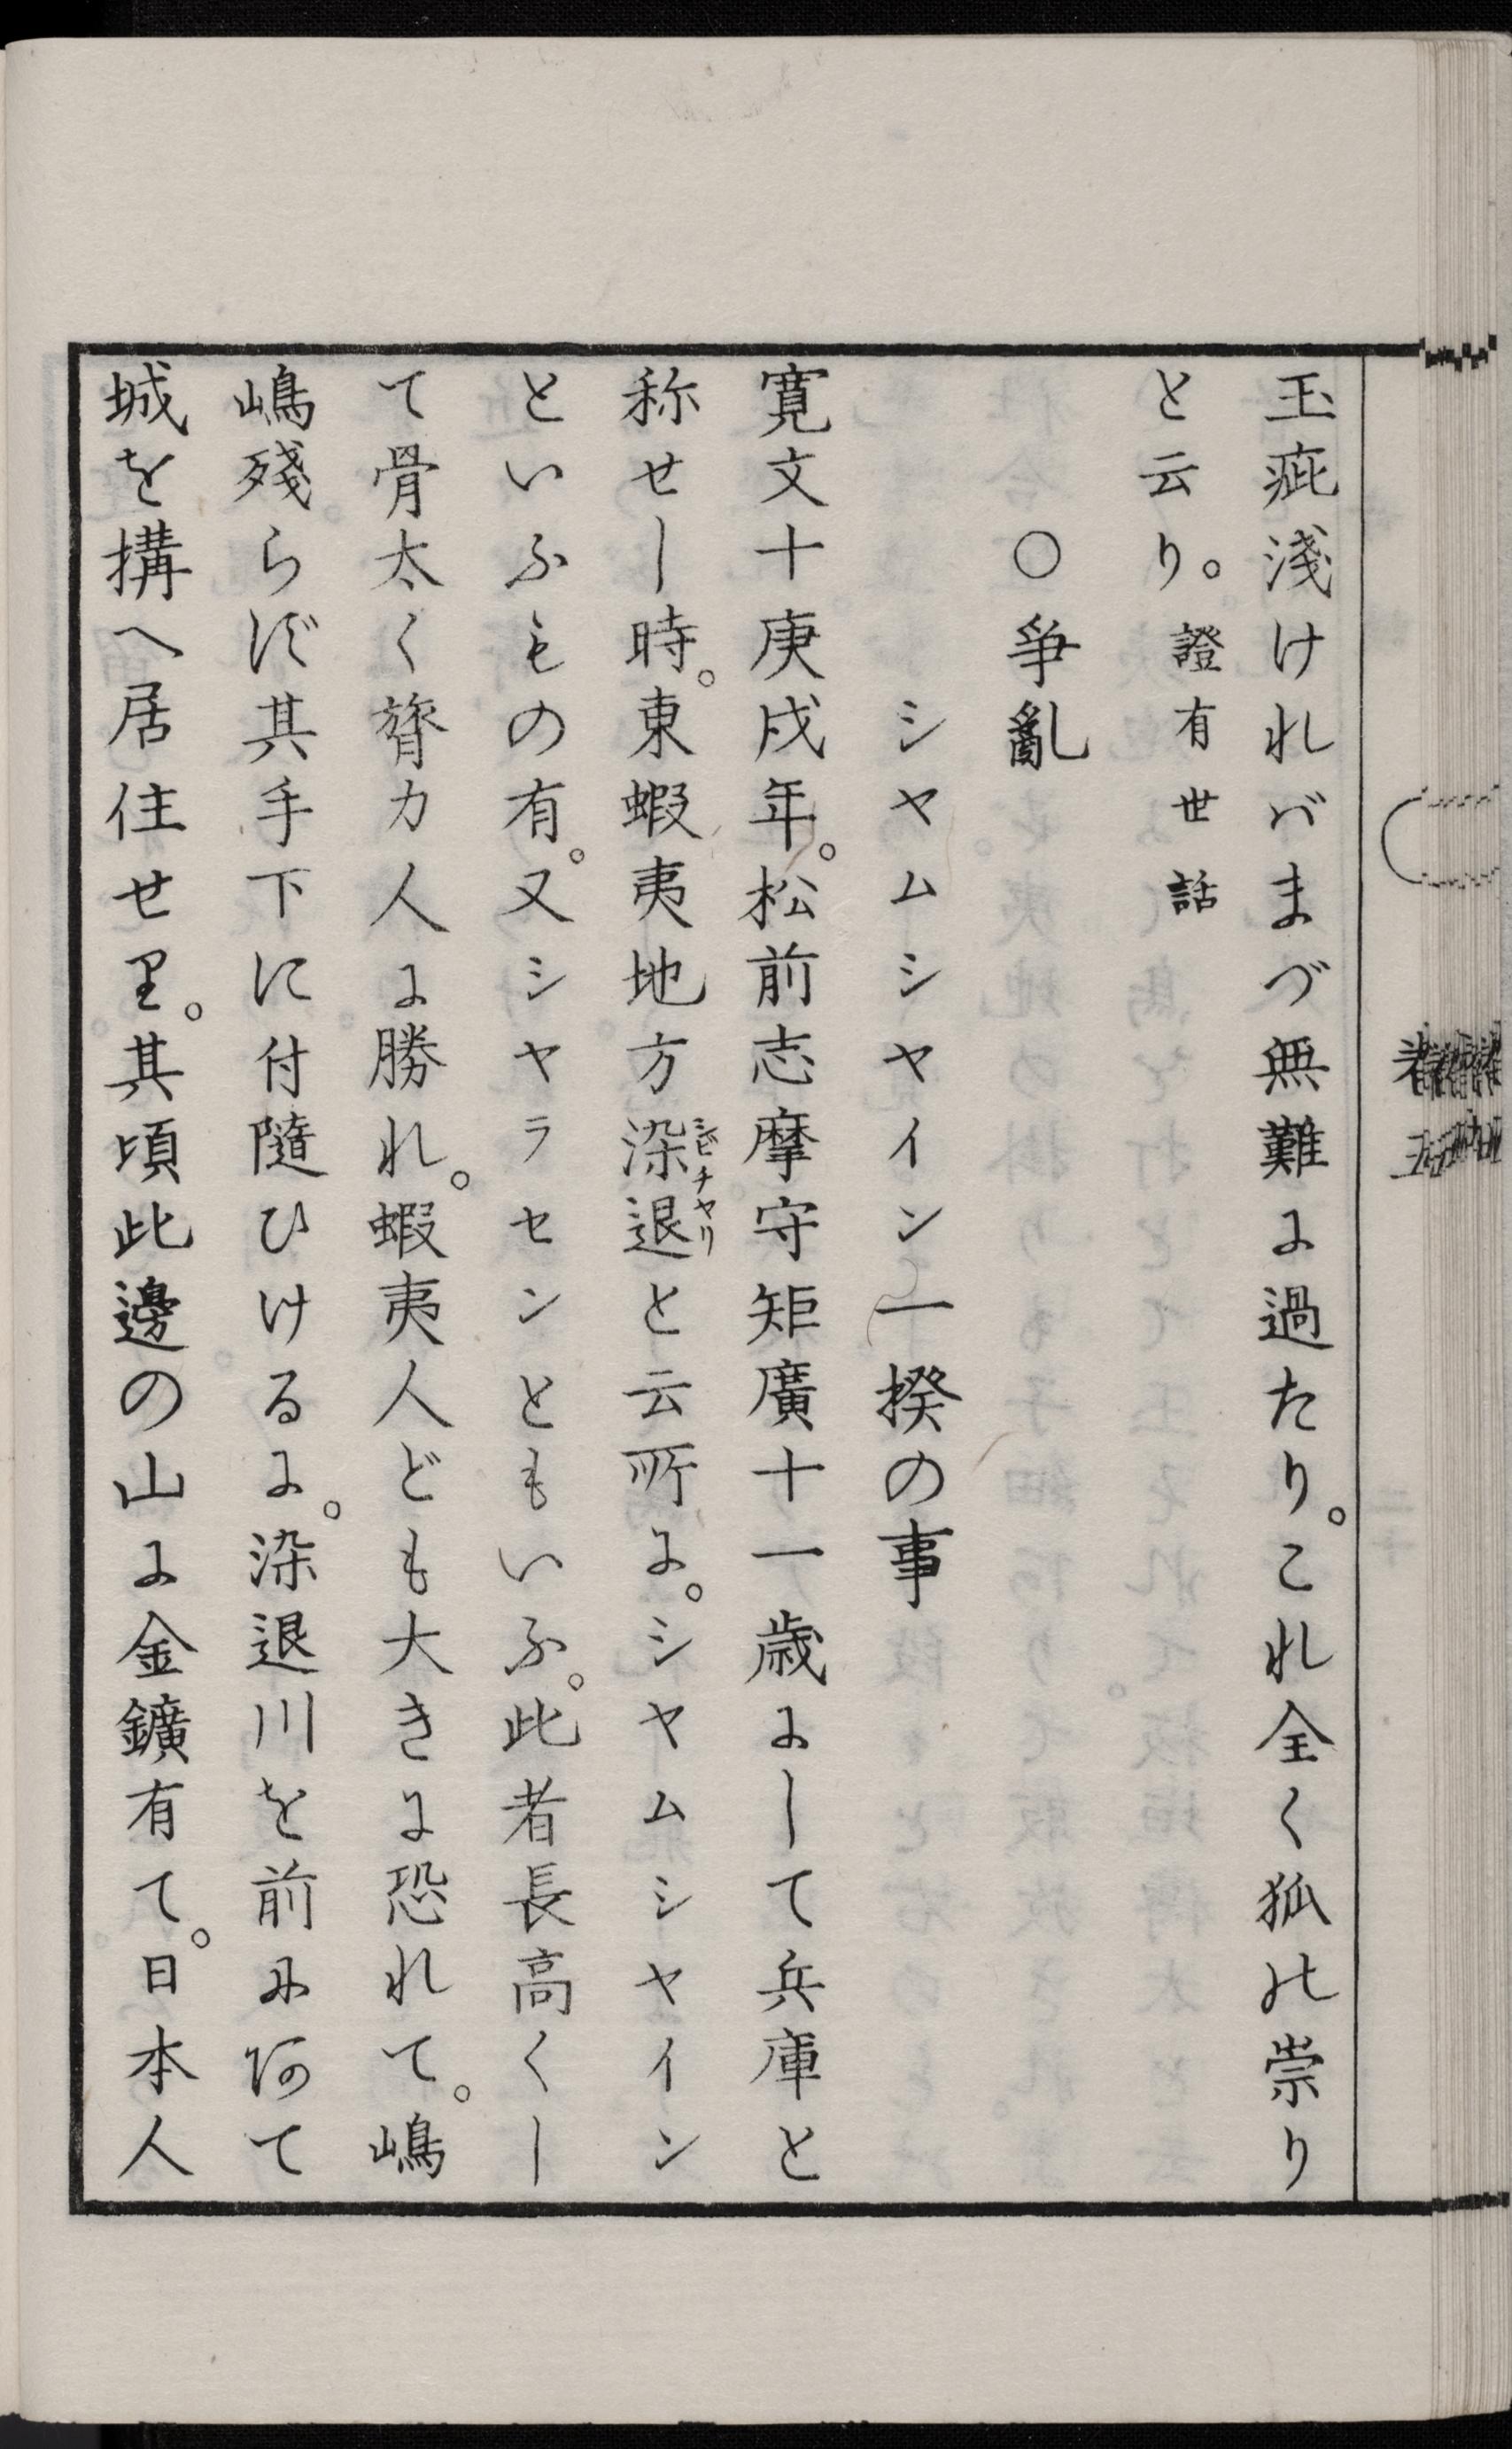 玉疵淺けれバまづ無難に過たり。これ全く狐の崇り
と云り。證有世話
○爭亂
シヤムシヤイン一揆の事
寛文十庚戌年。松前志摩守矩廣十一歳にして兵庫と
称せし時。東蝦夷地方染退シビチヤリと云所に。シヤムシヤイン
といふもの有。又シヤラセンともいふ。此者長高くし
て骨太く膂力人に勝れ。蝦夷人ども大きに恐れて。嶋
嶋殘らず其手下に付隨ひけるに。染退川を前にあて
城を搆へ居住せり。其頃此邊の山に金鑛有て。日本人